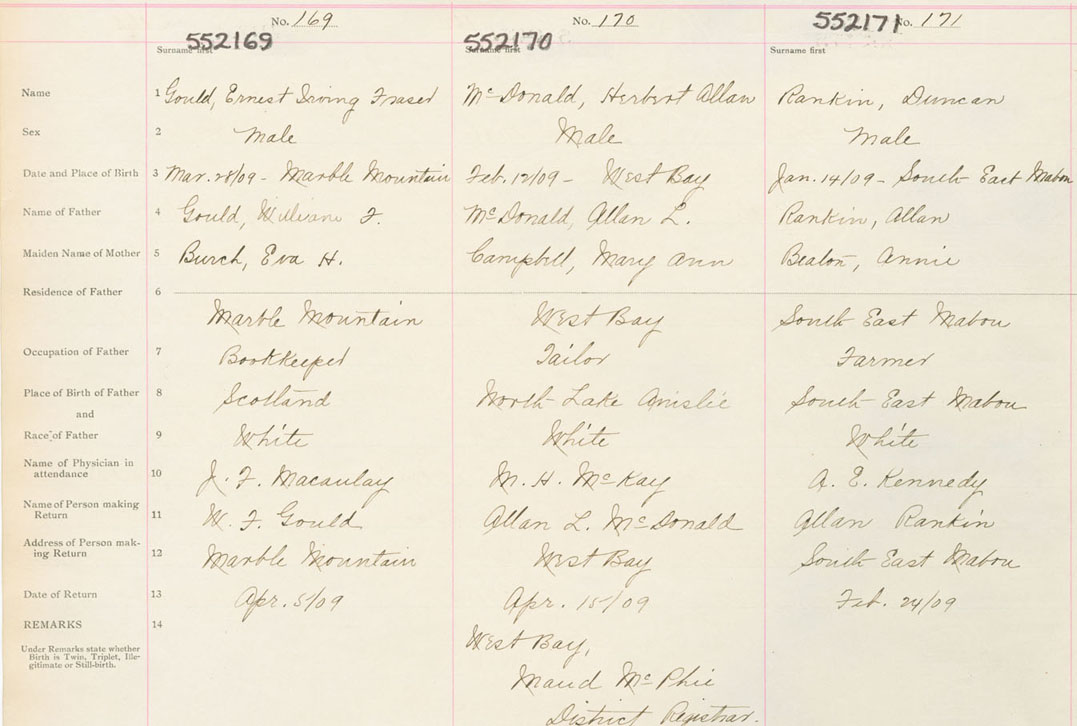 No. 169 No. 170 No. 171
552169 552170 552171
Surname first Surname first Surname first
Name 1 Gould, Ernest Irving Fraser McDonald, Herbert Allan Rankin, Duncan
Sex 2 Male Male Male
Date and Place of Birth 3 Mar. 28/09 - Marble Mountain Feb. 12/09 - West Bay Jan. 14/09 - South East Mabou
Name of Father 4 Gould, William F. McDonald, Allan L. Rankin, Allan
Maiden Name of Mother 5 Burch, Eva H. Campbell, Mary Ann Beaton, Annie
Residence of Father 6
Marble Mountain West Bay South East Mabou
Occupation of Father 7 Bookkeeper Tailor Farmer
Place of Birth of Father 8 Scotland North Lake Ainslie South East Mabou
and
Race of Father 9 White White White
Name of Physician in
attendance 10 J. F. Macaulay M. H. McKay A. E. Kennedy
Name of Person making
Return 11 W. F. Gould Allan L. McDonald Allan Rankin
Address of Person mak-
ing Return 12 Marble Mountain West Bay South East Mabou
Date of Return 13 Apr. 5/09 Apr. 15/09 Feb. 24/09
REMARKS 14
Under Remarks state whether
Birth is Twin, Triplet, Ille-
gitimate or Still-birth.
West Bay,
Maud McPhie
District Registrar.